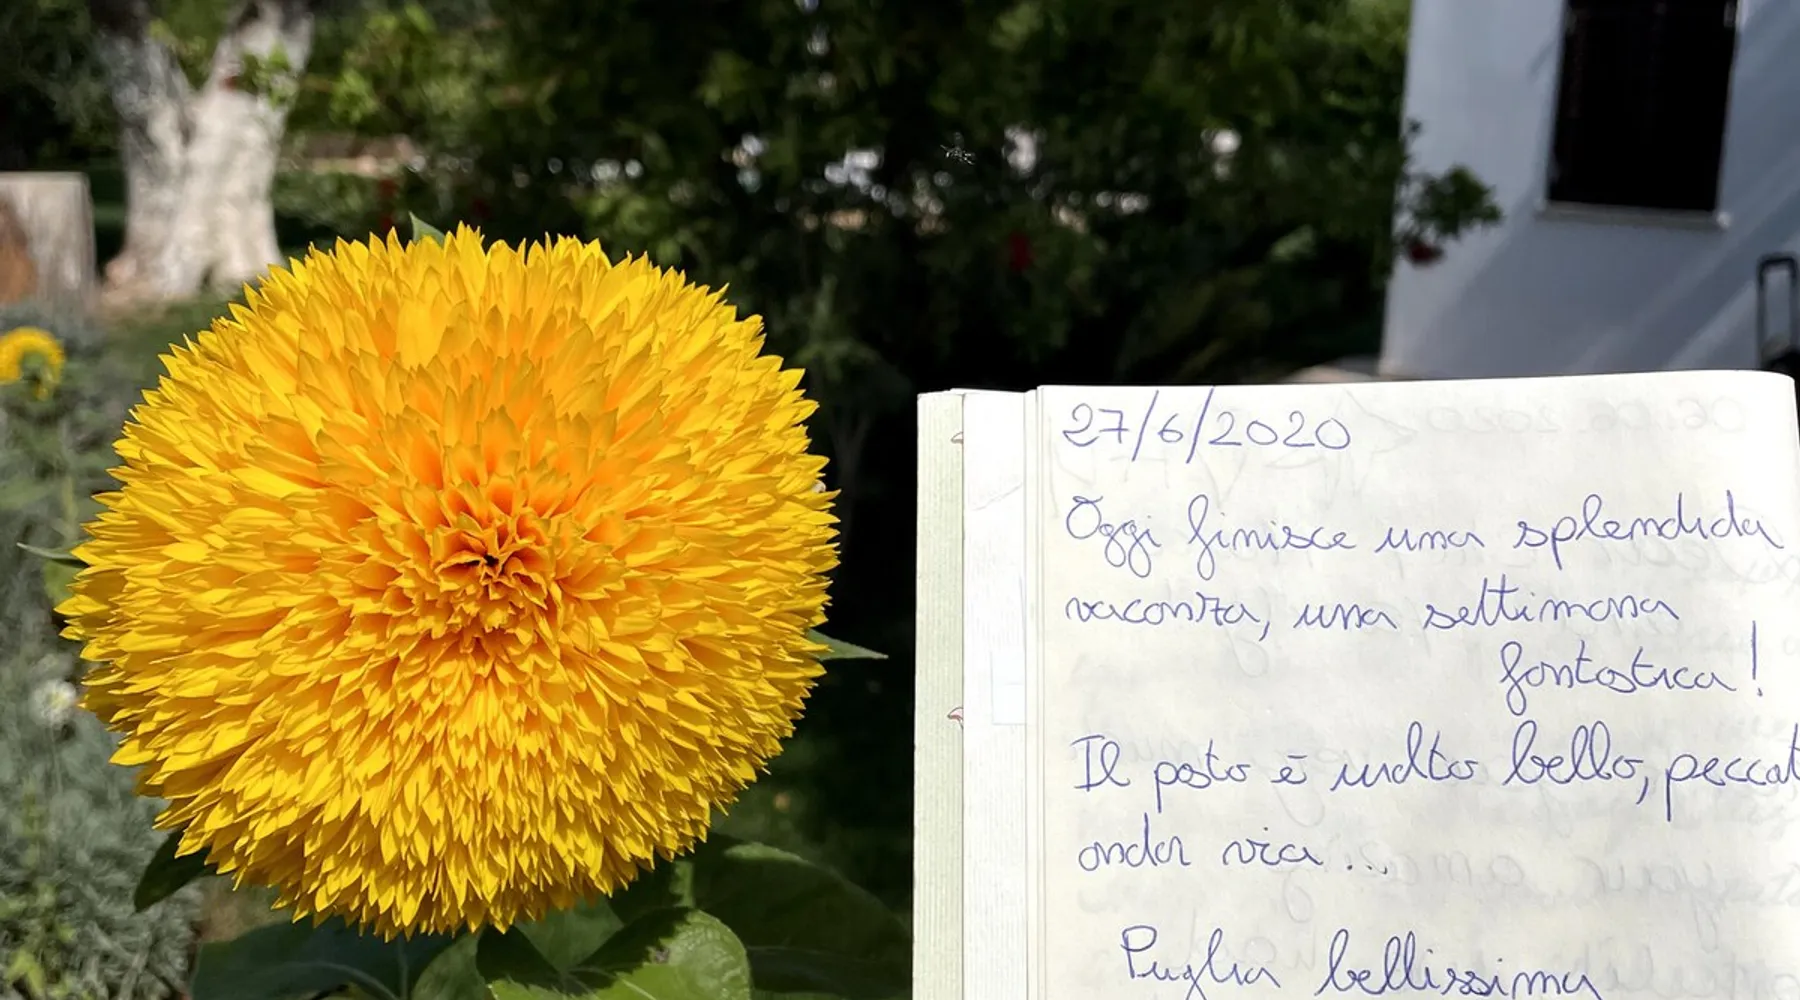 27/6/2020
Oggi finisce una splendida
vacanza, una settimana
fantastica!
Il posto è molto bello, peccat
andar via...
Puglia bellissima